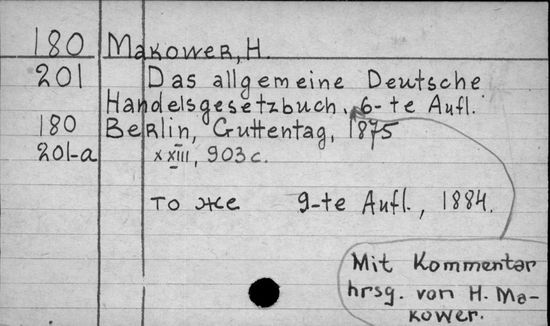 180 Makower, H.
201 Das allgemeine Deutsche
Handelsgesetzbuch. 6-te Aufl.
180 Berlin, Guttentag, 1875
201-a XXIII, 903 c.
то же 9-te Aufl., 1884.
Mit Kommentar
hrsg. von H. Ma-
kower.